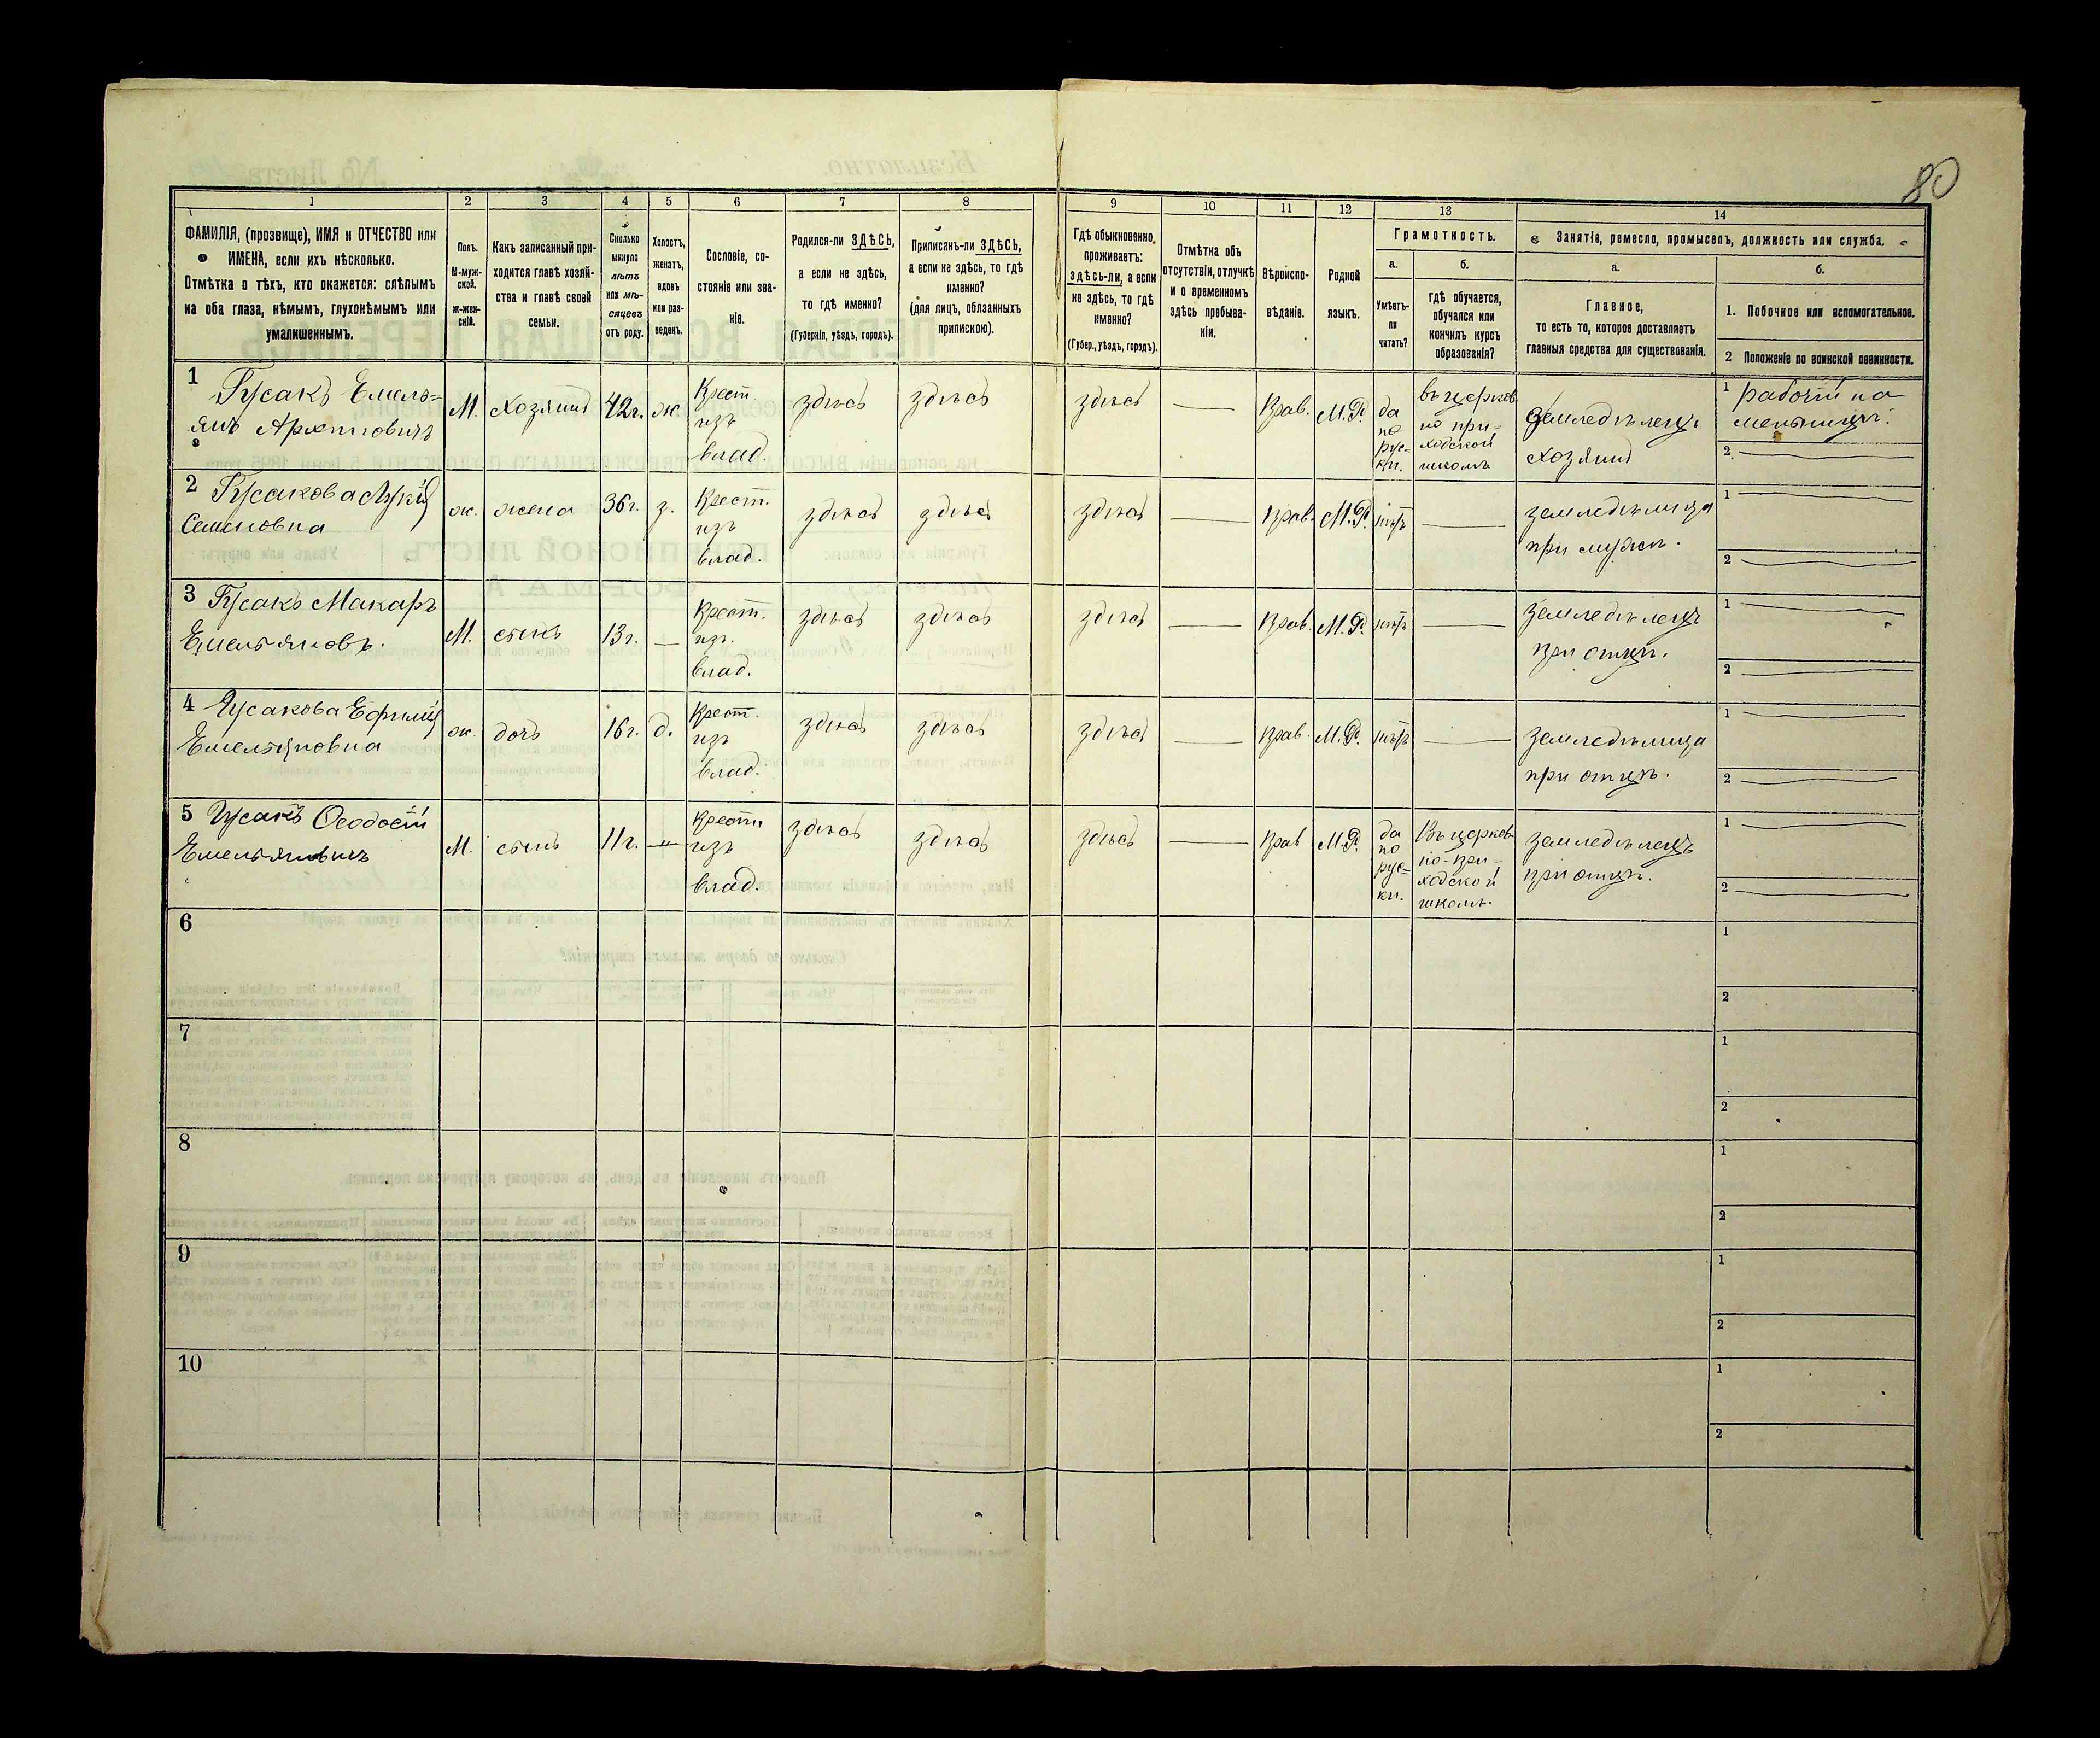 80
1 2 3 4 5 6 7 8 9 10 11 12 13 14
ФАМИЛІЯ, (прозвище), ИМЯ и ОТЧЕСТВО или
ИМЕНА, если ихъ нѣсколько.
Отмѣтка о тѣхъ, кто окажется: слѣпымъ
на оба глаза, нѣмымъ, глухонѣмымъ или
умалишеннымъ.
Полъ.
М-муж-
ской.
ж-жен-
скій.
Какъ записанный при-
ходится главѣ хозяй-
ства и главѣ своей
семьи.
Сколько
минуло
лѣтъ
или мѣ-
сяцевъ
отъ роду.
Холостъ,
женатъ,
вдовъ
или раз-
веденъ.
Сословіе, со-
стояніе или зва-
ніе.
Родился-ли ЗДѢСЬ,
а если не здѣсь,
то гдѣ именно?
(Губернія, уѣздъ, городъ).
Приписанъ-ли ЗДѢСЬ,
а если не здѣсь, то гдѣ
именно?
(для лицъ, обязанныхъ
припискою).
Гдѣ обыкновенно,
проживаетъ:
здѣсь-ли, а если
не здѣсь, то гдѣ
именно?
(Губер., уѣздъ, городъ).
Отмѣтка объ
отсутствіи, отлучкѣ
и о временномъ
здѣсь пребыва-
ніи.
Вѣроиспо-
вѣданіе.
Родной
языкъ.
Грамотность.
а.
Умѣетъ-
ли
читать?
б.
гдѣ обучается,
обучался или
кончилъ курсъ
образованія?
Занятіе, ремесло, промыселъ, должность или служба.
а.
Главное,
то есть то, которое доставляетъ
главныя средства для существованія.
б.
1. Побочное или вспомогательное.
2 Положеніе по воинской повинности.
1 Гусакъ Емель=
янъ Архиповичъ
М.
Хозяинъ
42г.
ж.
Крест
изъ
влад.
здѣсь
здѣсь
здѣсь
Прав.
М.Р.
да
по
рус=
ки.
въ церков
но при=
ходской
школѣ
Земледѣлецъ
хозяинъ
1 рабочій на
мельницѣ.
2.
2 Гусакова
Семеновна
ж.
жена
36г.
з.
Крест.
изъ
влад.
здѣсь
здѣсь
здѣсь
Прав.
М.Р.
нѣтъ
земледѣлица
при мужѣ.
1
2
3 Гусакъ Макаръ
Емельяновъ.
М.
сынъ
13г.
Крест.
изъ.
влад.
здѣсь
здѣсь
здѣсь
Прав.
М.Р.
нѣтъ
земледѣлецъ
при отцѣ.
1
2
4 Гусакова
Емельяновна
ж.
дочь
16г.
д.
Крест.
изъ
влад.
здѣсь
здѣсь
здѣсь
Прав.
М.Р.
нѣтъ
земледѣлица
при отцѣ.
1
2
5 Гусакъ Ѳеодосій
Емельяновичъ
М.
сынъ
11г.
Крест
изъ
влад.
здѣсь
здѣсь
здѣсь
Прав
М.Р.
да
по
рус=
ки.
Въ церков
но-при=
ходской
школѣ.
земледѣлецъ
при отцѣ.
1
2
6
1
2
7
1
2
8
1
2
9
1
2
10
1
2